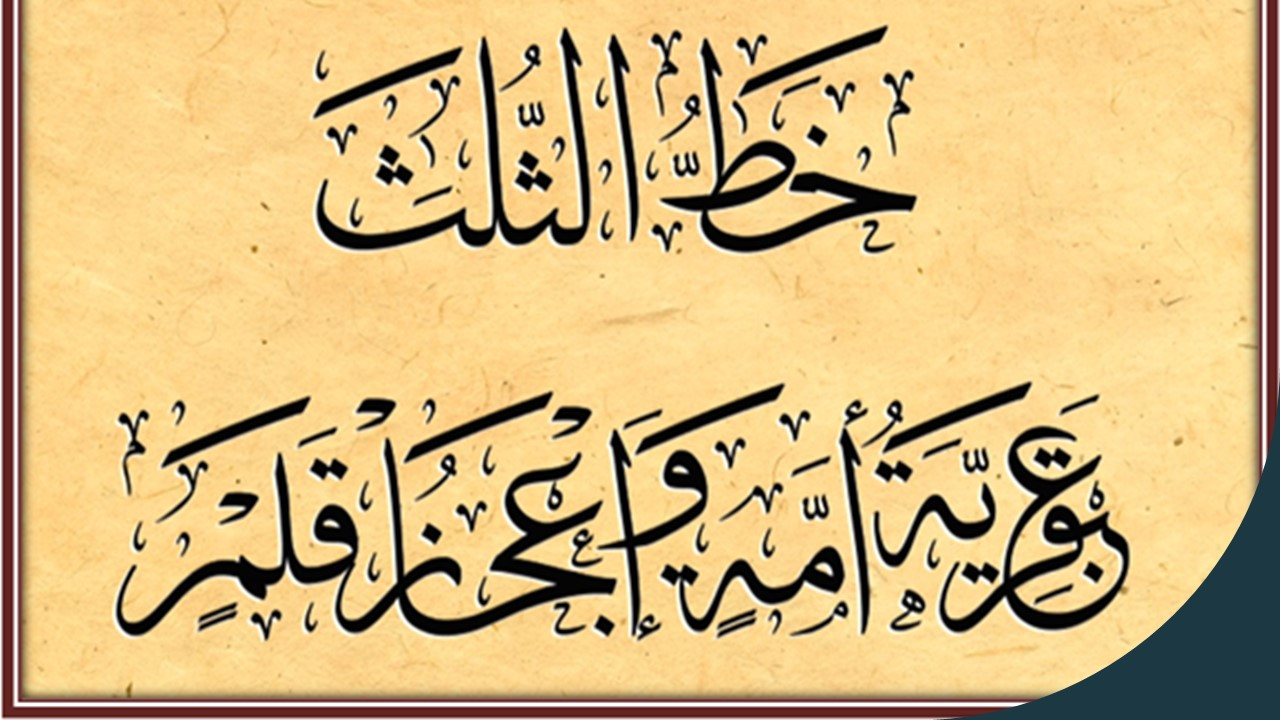 خَطُّ الثُّلُث
عَبْقَرِيَّةُ أُمَّةٍ وَإِعْجَازُ قَلَمٍ